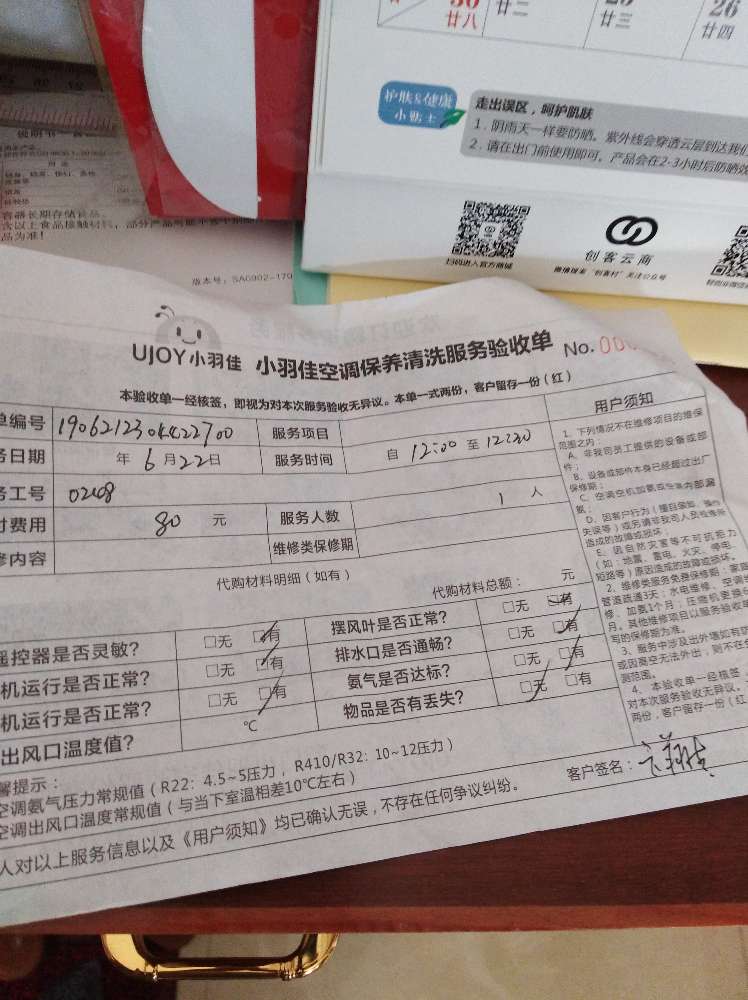 廿八
廿二
廿三
26
廿四
护肤&健康
小贴士
走出误区，呵护肌肤
1. 阴雨天一样要防晒。紫外线会穿透云层到达我们
2. 请在出门前使用即可，产品会在2-3小时后防晒效
扫码进入官方商城
创客云商
微信搜索“创客村”关注公众号
版本号：SA0902-179
UJOY小羽佳 小羽佳空调保养清洗服务验收单 No.
本验收单一经核签，即视为对本次服务验收无异议。本单一式两份，客户留存一份（红）
单编号 服务项目
务日期 年 6 月 22 日 服务时间 自 12:00 至 12:30
务工号
付费用 80 元 服务人数 1 人
修内容 维修类保修期
代购材料明细（如有） 代购材料总额： 元
遥控器是否灵敏？ □无 □有 摆风叶是否正常？ □无 □有
机运行是否正常？ □无 □有 排水口是否通畅？ □无 □有
机运行是否正常？ □无 □有 氨气是否达标？ □无 □有
出风口温度值？ ℃ 物品是否有丢失？ □无 □有
馨提示：
空调氨气压力常规值（R22：4.5~5压力，R410/R32：10~12压力）
空调出风口温度常规值（与当下室温相差10℃左右）
人对以上服务信息以及《用户须知》均已确认无误，不存在任何争议纠纷。
客户签名：
用户须知
1、下列情况不在维修项目的维保
范围之内：
A、非我司员工提供的设备或部
件；
B、设备或部件本身已经超过出厂
保修期；
D、因客户行为（擅自
E、因自然灾害等不可抗拒力
（如：地震、雷电、火灾、停电、
短路等）原因造成的故障或损坏。
2、维修类服务免费保修期：家庭
管道疏通3天；水电维修、空调
修、加氨1个月；压缩机更换
月。其他维修项目以服务验收
写的保修期为准。
3、服务中涉及出外墙如有
或因高空无法外出，则不在
测范围。
4、本验收单一经核签，
对本次服务验收无异议。
两份，客户留存一份（红